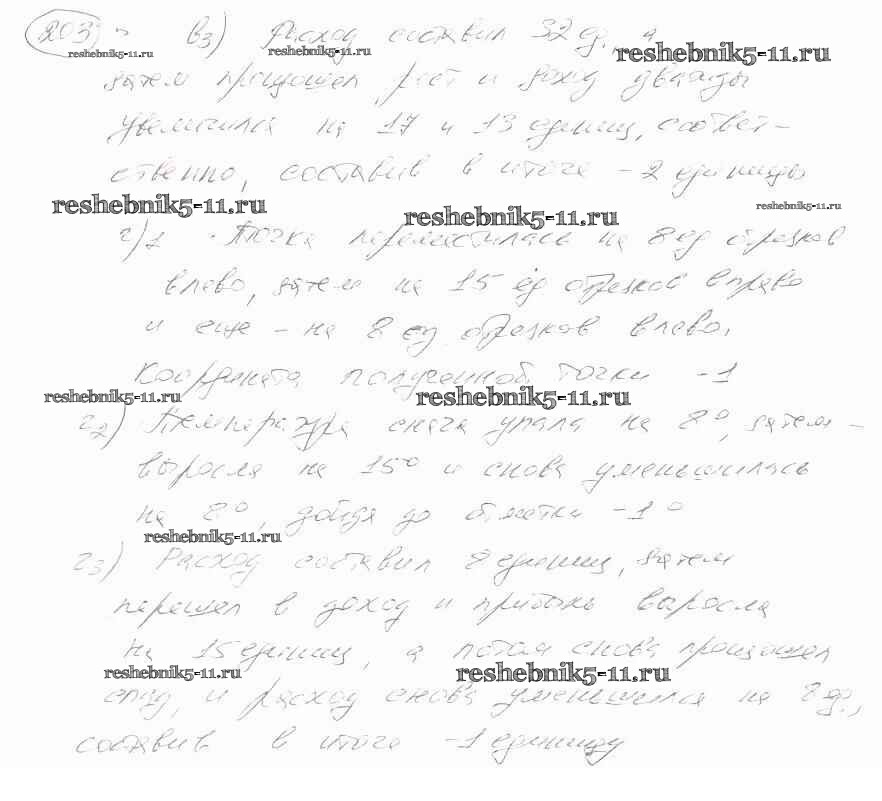 203. в3) Расход составил 32 ед., а
reshebnik5-11.ru reshebnik5-11.ru reshebnik5-11.ru
затем произошел рост и доход дважды
увеличился на 17 и 13 единиц, соответ-
ственно, составив в итоге -2 единицы
reshebnik5-11.ru reshebnik5-11.ru reshebnik5-11.ru
г)1 Точка переместилась на 8 ед отрезков
влево, затем на 15 ед отрезков вправо
и еще - на 8 ед. отрезков влево.
Координата полученной точки -1
reshebnik5-11.ru reshebnik5-11.ru
г2) Температура снача упала на 8°, затем -
выросла на 15° и снова уменьшилась
на 8°, дойдя до отметки -1°
reshebnik5-11.ru
г3) Расход составил 8 единиц, затем
перешел в доход и прибыль выросла
на 15 единиц, а потом снова произошел
reshebnik5-11.ru reshebnik5-11.ru
спад, и расход снова уменьшился на 8 ед.,
составив в итоге -1 единицу